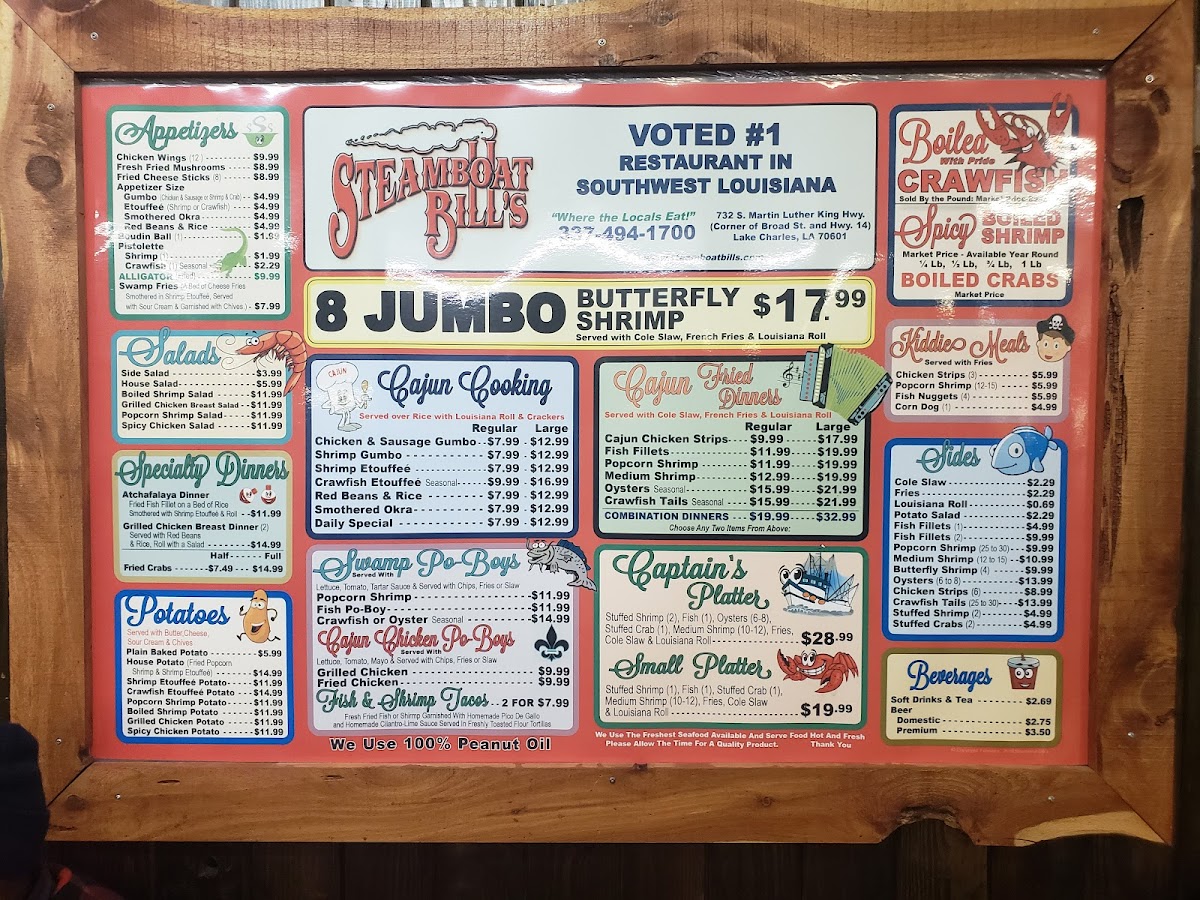 Appetizers
Chicken Wings (12) $9.99
Fresh Fried Mushrooms $8.99
Fried Cheese Sticks (8) $8.99
Appetizer Size
Gumbo (Chicken & Sausage or Shrimp & Crab) $4.99
Etouffeé (Shrimp or Crawfish) $4.99
Smothered Okra $4.99
Red Beans & Rice $4.99
Boudin Ball (1)
Pistolette
Shrimp (1) $1.99
Crawfish (1) Seasonal $2.29
ALLIGATOR $9.99
Swamp Fries (A Bed of Cheese Fries
Smothered in Shrimp Etouffeé, Served
with Sour Cream & Garnished with Chives.) $7.99
Salads
Side Salad $3.99
House Salad $5.99
Boiled Shrimp Salad $11.99
Grilled Chicken Breast Salad $11.99
Popcorn Shrimp Salad $11.99
Spicy Chicken Salad $11.99
Specialty Dinners
Atchafalaya Dinner
Fried Fish Fillet on a Bed of Rice
Smothered with Shrimp Etouffeé & Roll $11.99
Grilled Chicken Breast Dinner (2)
Served with Red Beans
& Rice, Roll with a Salad $14.99
Half Full
Fried Crabs $7.49 $14.99
Potatoes
Served with Butter, Cheese,
Sour Cream & Chives
Plain Baked Potato $5.99
House Potato (Fried Popcorn
Shrimp & Shrimp Etouffeé) $14.99
Shrimp Etouffeé Potato $11.99
Crawfish Etouffeé Potato $14.99
Popcorn Shrimp Potato $11.99
Boiled Shrimp Potato $11.99
Grilled Chicken Potato $11.99
Spicy Chicken Potato $11.99
STEAMBOAT
BILL'S
VOTED #1
RESTAURANT IN
SOUTHWEST LOUISIANA
"Where the Locals Eat!"
337-494-1700
732 S. Martin Luther King Hwy.
(Corner of Broad St. and Hwy. 14)
Lake Charles, LA 70601
8 JUMBO BUTTERFLY SHRIMP $17.99
Served with Cole Slaw, French Fries & Louisiana Roll
CAJUN
Cajun Cooking
Served over Rice with Louisiana Roll & Crackers
Regular Large
Chicken & Sausage Gumbo $7.99 $12.99
Shrimp Gumbo $7.99 $12.99
Shrimp Etouffeé $7.99 $12.99
Crawfish Etouffeé Seasonal $9.99 $16.99
Red Beans & Rice $7.99 $12.99
Smothered Okra $7.99 $12.99
Daily Special $7.99 $12.99
Swamp Po-Boys
Served With
Lettuce, Tomato, Tartar Sauce & Served with Chips, Fries or Slaw
Popcorn Shrimp $11.99
Fish Po-Boy $11.99
Crawfish or Oyster Seasonal $14.99
Cajun Chicken Po-Boys
Served With
Lettuce, Tomato, Mayo & Served with Chips, Fries or Slaw
Grilled Chicken $9.99
Fried Chicken $9.99
Fish & Shrimp Tacos 2 FOR $7.99
Fresh Fried Fish or Shrimp Garnished With Homemade Pico De Gallo
and Homemade Cilantro-Lime Sauce Served In Freshly Toasted Flour Tortillas
We Use 100% Peanut Oil
Cajun Fried
Dinners
Served with Cole Slaw, French Fries & Louisiana Roll
Regular Large
Cajun Chicken Strips $9.99 $17.99
Fish Fillets $11.99 $19.99
Popcorn Shrimp $11.99 $19.99
Medium Shrimp $12.99 $19.99
Oysters Seasonal $15.99 $21.99
Crawfish Tails Seasonal $15.99 $21.99
COMBINATION DINNERS $19.99 $32.99
Choose Any Two Items From Above:
Captain's
Platter
Stuffed Shrimp (2), Fish (1), Oysters (6-8),
Stuffed Crab (1), Medium Shrimp (10-12), Fries,
Cole Slaw & Louisiana Roll $28.99
Small Platter
Stuffed Shrimp (1), Fish (1), Stuffed Crab (1),
Medium Shrimp (10-12), Fries, Cole Slaw
& Louisiana Roll $19.99
We Use The Freshest Seafood Available And Serve Food Hot And Fresh
Please Allow The Time For A Quality Product. Thank You
Boiled
With Pride
CRAWFISH
Sold By the Pound: Market Price
Spicy BOILED SHRIMP
Market Price - Available Year Round
¼ Lb, ½ Lb, ¾ Lb, 1 Lb
BOILED CRABS
Market Price
Kiddie Meals
Served with Fries
Chicken Strips (3) $5.99
Popcorn Shrimp (12-15) $5.99
Fish Nuggets (4) $5.99
Corn Dog (1) $4.99
Sides
Cole Slaw $2.29
Fries $2.29
Louisiana Roll $0.69
Potato Salad $2.29
Fish Fillets (1) $4.99
Fish Fillets (2) $9.99
Popcorn Shrimp (25 to 30) $9.99
Medium Shrimp (12 to 15) $10.99
Butterfly Shrimp (4) $9.99
Oysters (6 to 8) $13.99
Chicken Strips (6) $8.99
Crawfish Tails (25 to 30) $13.99
Stuffed Shrimp (2) $4.99
Stuffed Crabs (2) $4.99
Beverages
Soft Drinks & Tea $2.69
Beer
Domestic $2.75
Premium $3.50